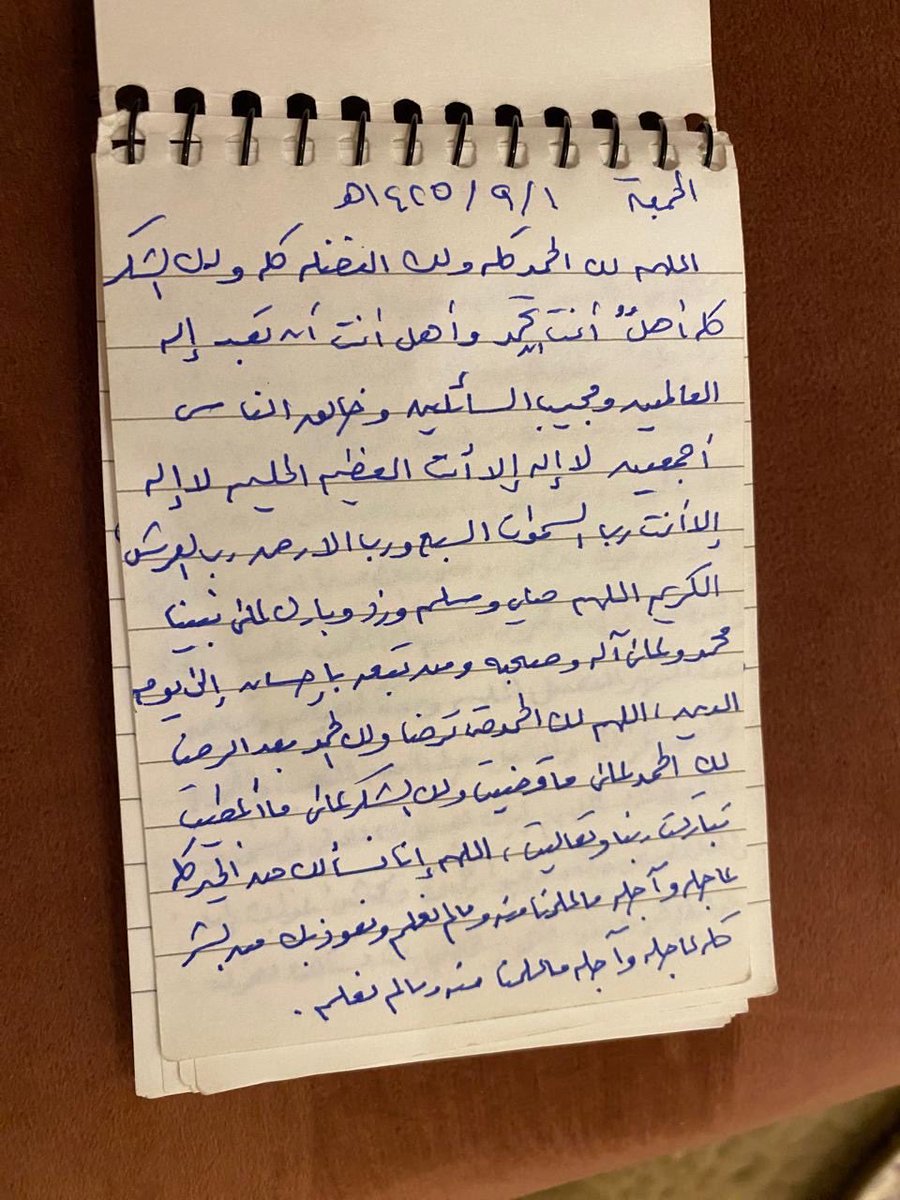 الجمعة ١/ ٩ / ١٤٢٥هـ
اللهم لك الحمد كله ولك الفضل كله ولك الشكر
كله أهلٌ أنت الحمد وأهل أنت أن تعبد إله
العالمين ومجيب السائلين وخالق الناس
أجمعين لا إله إلا أنت العظيم الحليم لا إله
إلا أنت رب السموات السبع ورب الارض رب العرش
الكريم اللهم صلي وسلم وزد وبارك على نبينا
محمد وعلى آله وصحبه ومن تبعه بإحسان إلى يوم
الدين، اللهم لك الحمد حتى ترضا ولك الحمد بعد الرضا
لك الحمد على ما قضيت ولك الشكر على ما أعطيت
تباركت ربنا وتعاليت، اللهم إنا نسألك من الخير كله
عاجله وآجله ما علمنا منه وما لم نعلم ونعوذ بك من الشر
كله عاجله وآجله ما علمنا منه وما لم نعلم.